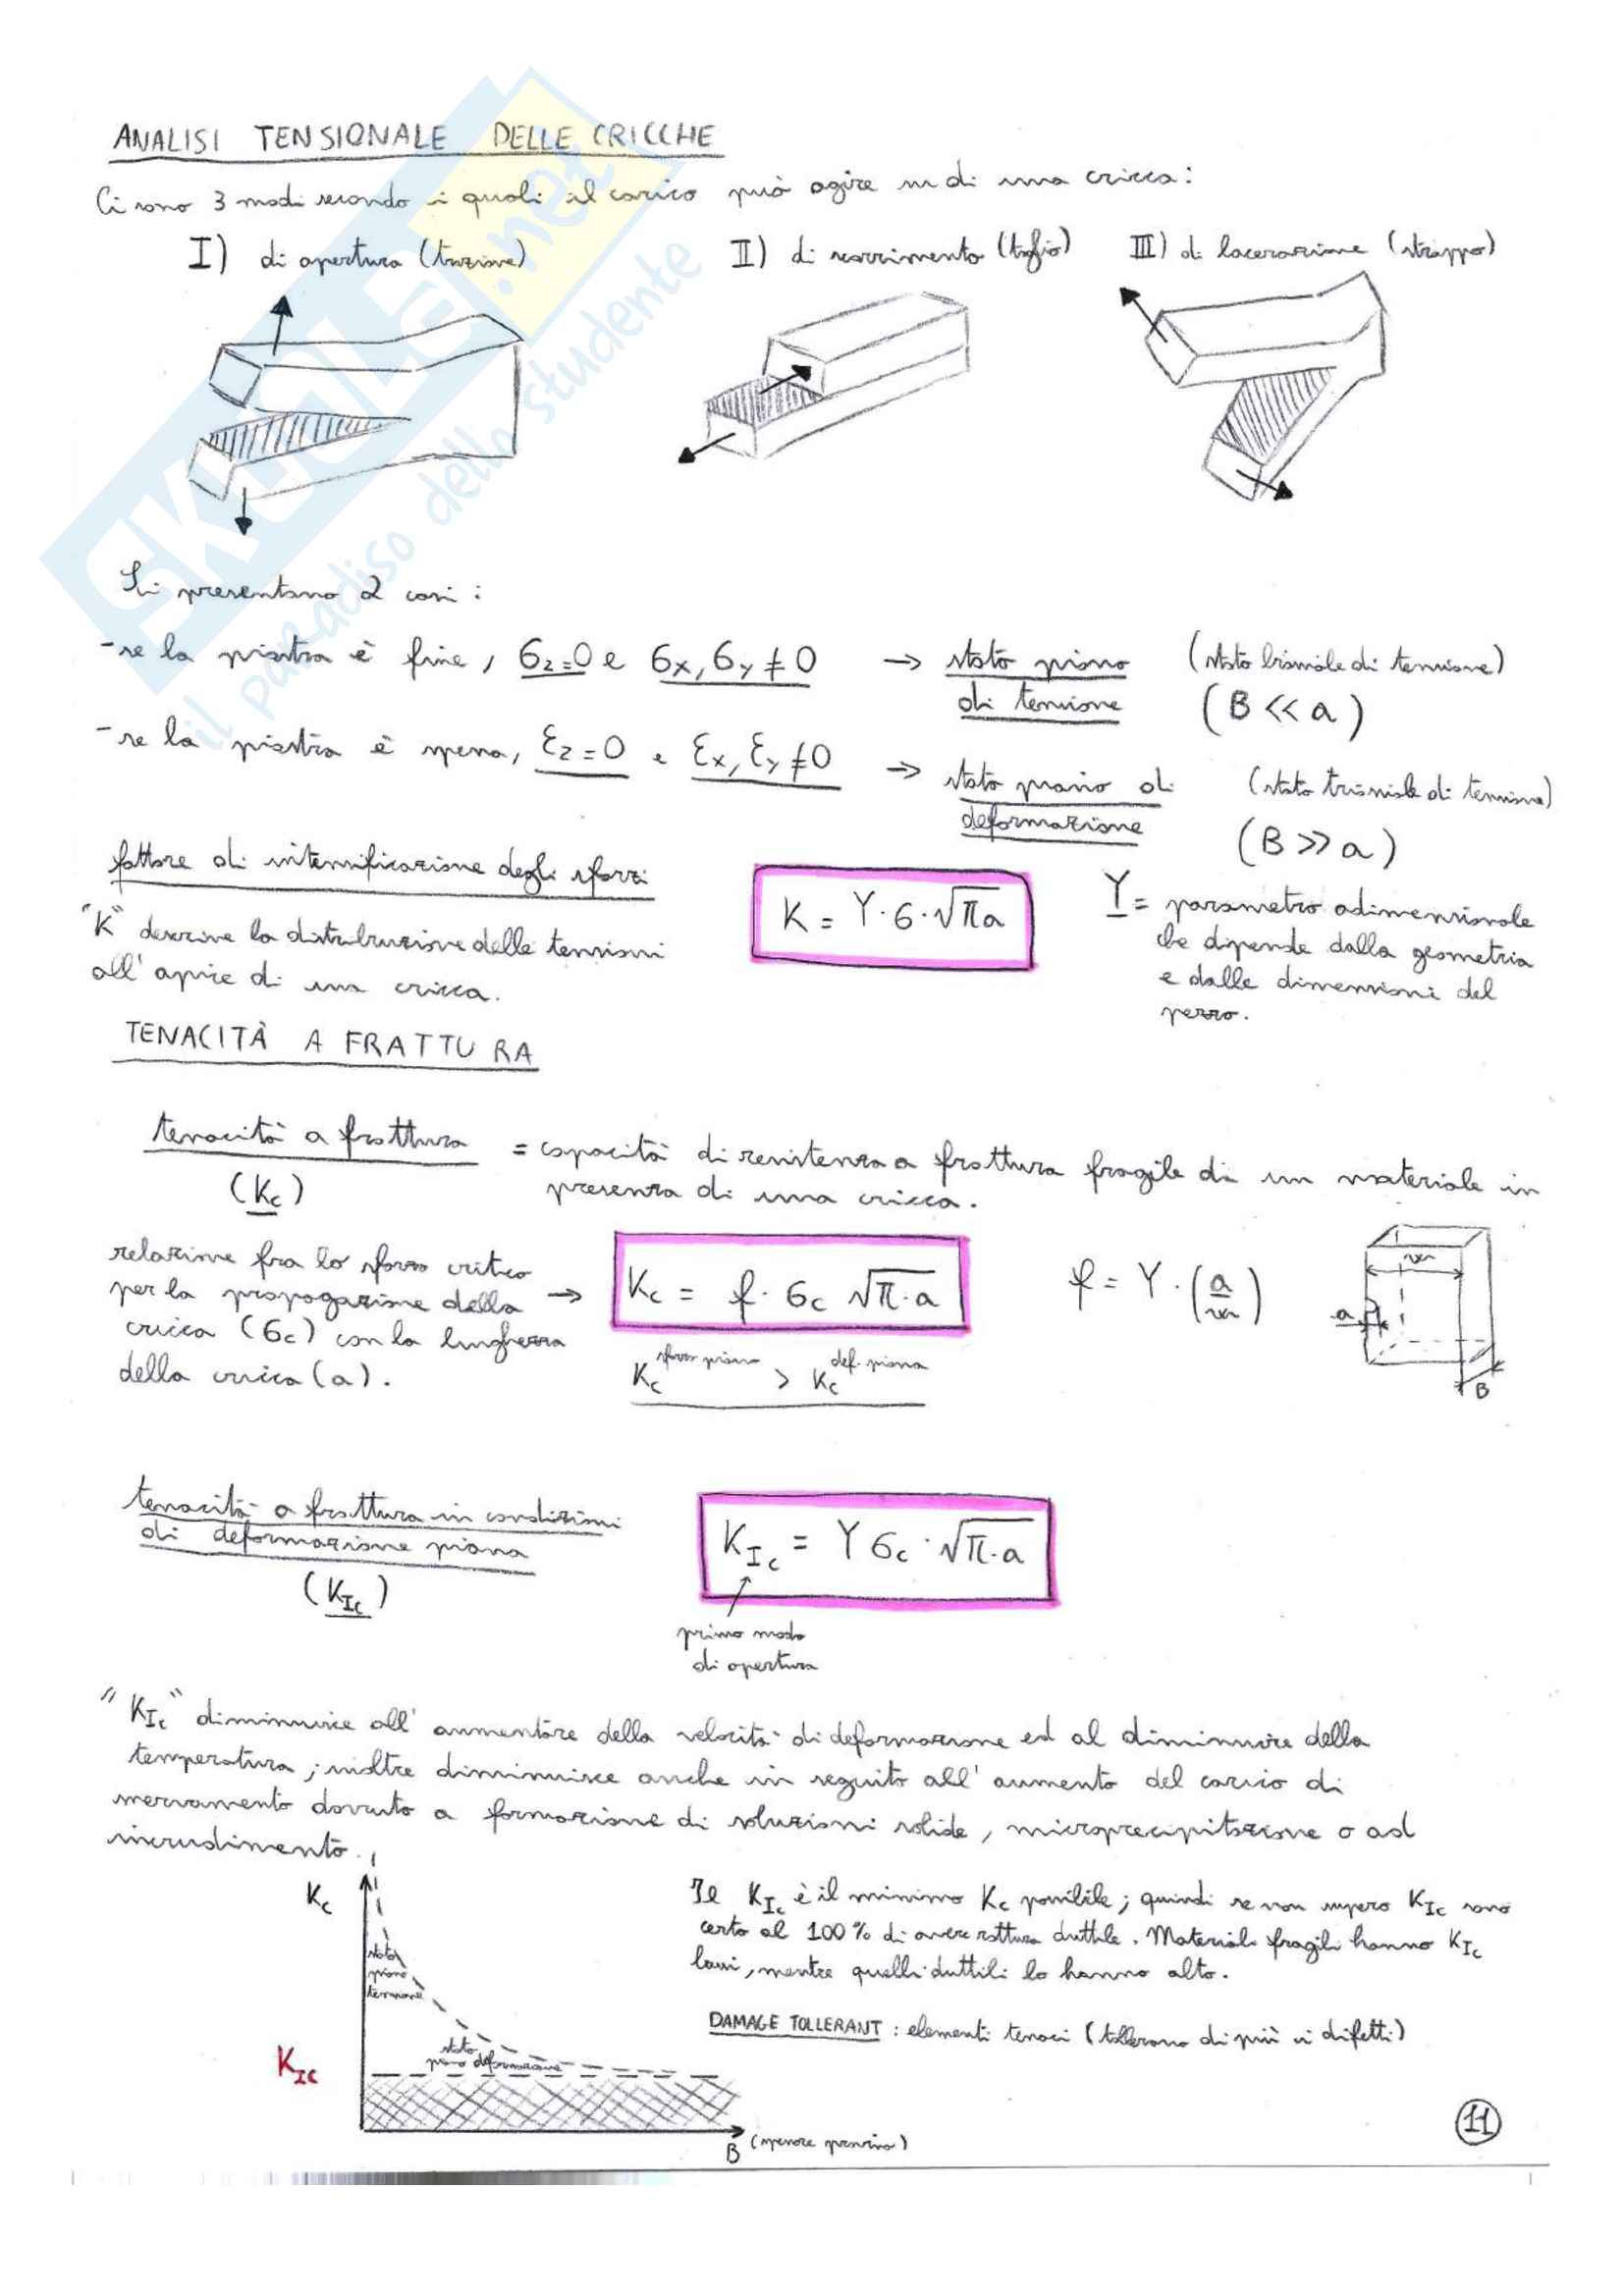 ANALISI TENSIONALE DELLE CRICCHE
Ci sono 3 modi secondo i quali il carico può agire su di una cricca:
I) di apertura (trazione)
II) di scorrimento (taglio)
III) di lacerazione (strappo)
SKUOLA.net
il paradiso dello studente
Si presentano 2 casi:
- se la piastra è fine, σz=0 e σx, σy ≠ 0 → stato piano di tensione (stato biassiale di tensione)
(B << a)
- se la piastra è spessa, εz=0 e εx, εy ≠ 0 → stato piano di deformazione (stato triassiale di tensione)
(B >> a)
fattore di intensificazione degli sforzi
"K" descrive la distribuzione delle tensioni
all'apice di una cricca.
K = Y·σ·√πa
Y = parametro adimensionale
che dipende dalla geometria
e dalle dimensioni del
pezzo.
TENACITÀ A FRATTURA
tenacità a frattura = capacità di resistenza a frattura fragile di un materiale in
(Kc) presenza di una cricca.
relazione fra lo sforzo critico
per la propagazione della →
cricca (σc) con la lunghezza
della cricca (a).
Kc = f·σc √π·a
Kc sforzo piano > Kc def. piana
f = Y·(a/w)
w
a
B
tenacità a frattura in condizioni
di deformazione piana
(KIc)
KIc = Y σc·√π·a
primo modo
di apertura
"KIc" diminuisce all'aumentare della velocità di deformazione ed al diminuire della
temperatura; inoltre diminuisce anche in seguito all'aumento del carico di
snervamento dovuto a formazione di soluzioni solide, microprecipitazione o ad
incrudimento.
Kc
stato
piano
tensione
stato
piano deformazione
KIc
B (spessore provino)
Il KIc è il minimo Kc possibile; quindi se non supero KIc sono
certo al 100% di avere rottura duttile. Materiali fragili hanno KIc
bassi, mentre quelli duttili lo hanno alto.
DAMAGE TOLLERANT: elementi tenaci (tollerano di più i difetti)
11